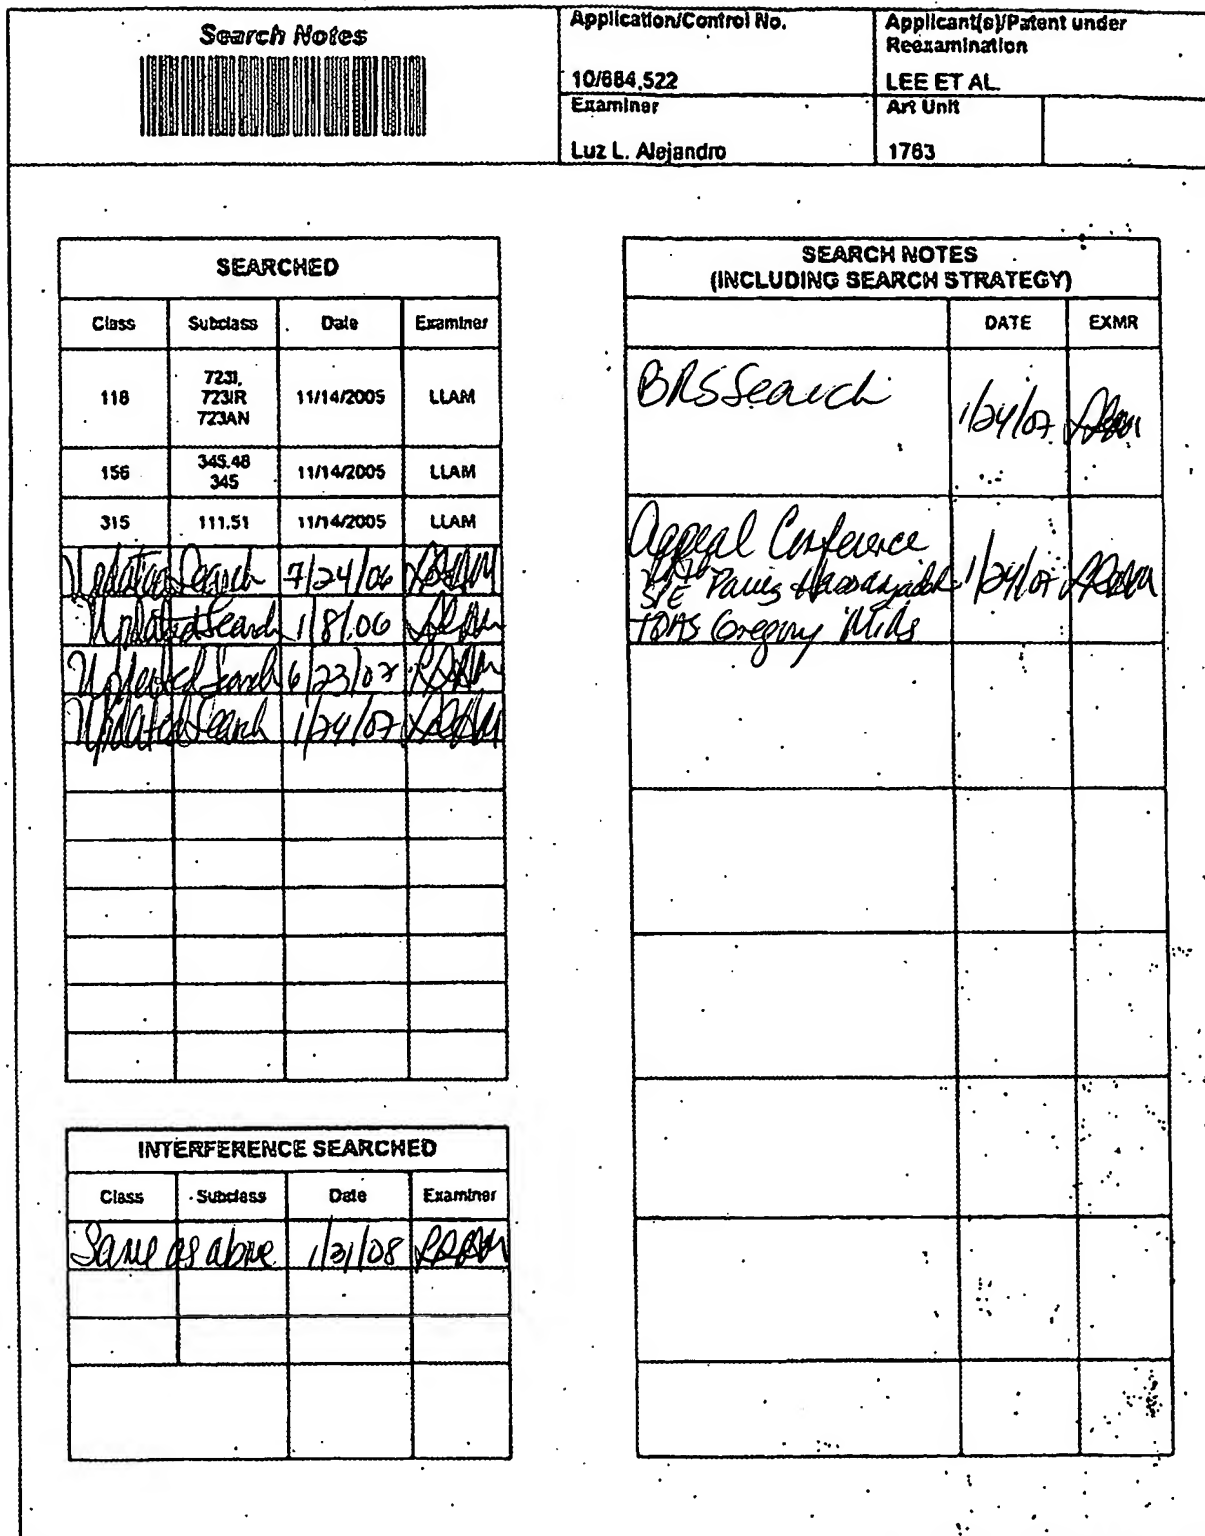 Search Notes
Application/Control No.
10/684,522
Applicant(s)/Patent under
Reexamination
LEE ET AL.
Examiner
Luz L. Alejandro
Art Unit
1763
SEARCHED
Class Subclass Date Examiner
118 723I, 723IR 723AN 11/14/2005 LLAM
156 345.48 345 11/14/2005 LLAM
315 111.51 11/14/2005 LLAM
Updated Search 7/24/06
Updated Search 1/8/06
Updated Search 6/23/07
Updated Search 1/24/07
INTERFERENCE SEARCHED
Class Subclass Date Examiner
Same as above 1/31/08
SEARCH NOTES
(INCLUDING SEARCH STRATEGY)
DATE EXMR
BRS Search 1/24/07
Appeal Conference
SPE Parviz Hassanzadeh 1/24/07
TQAS Gregory Mills